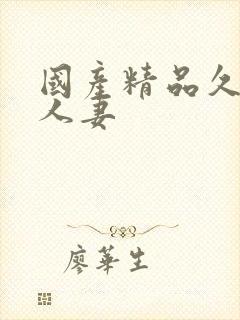 國産精品久
人妻
廖華生